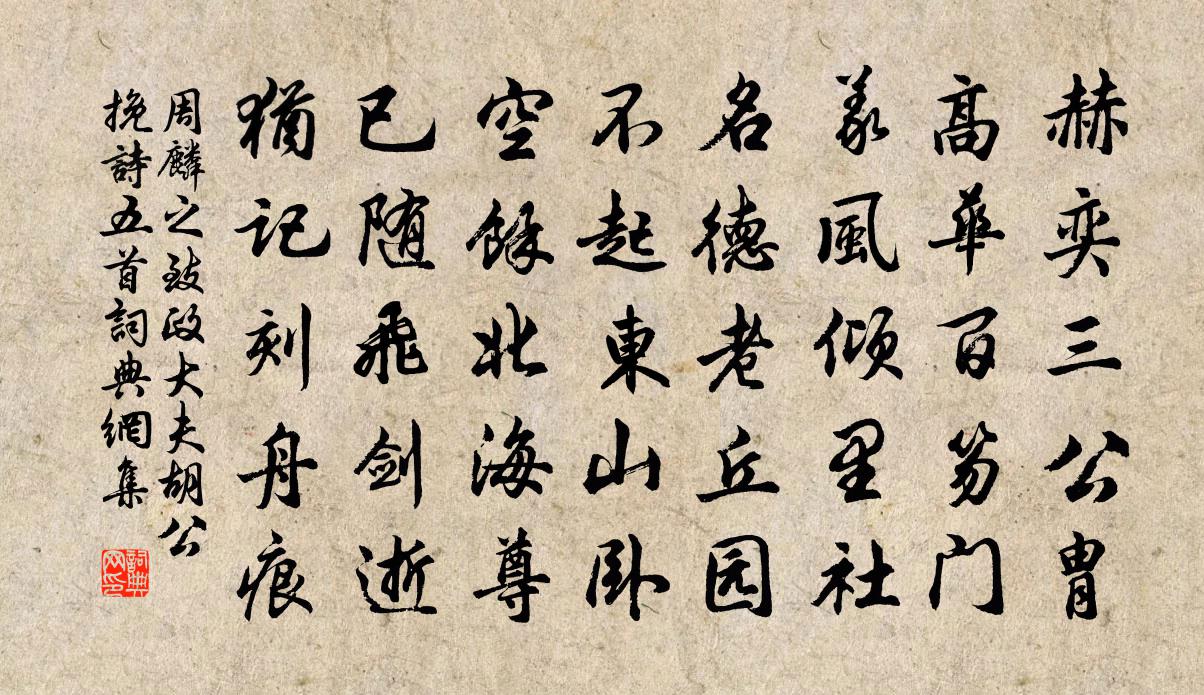 赫奕三公胄
高華百笏门
義風倾里社
名德老丘园
不起東山卧
空餘北海尊
已随飛劍逝
猶记刻舟痕
周麟之致政大夫胡公
挽詩五首詞典網集
詞典网印